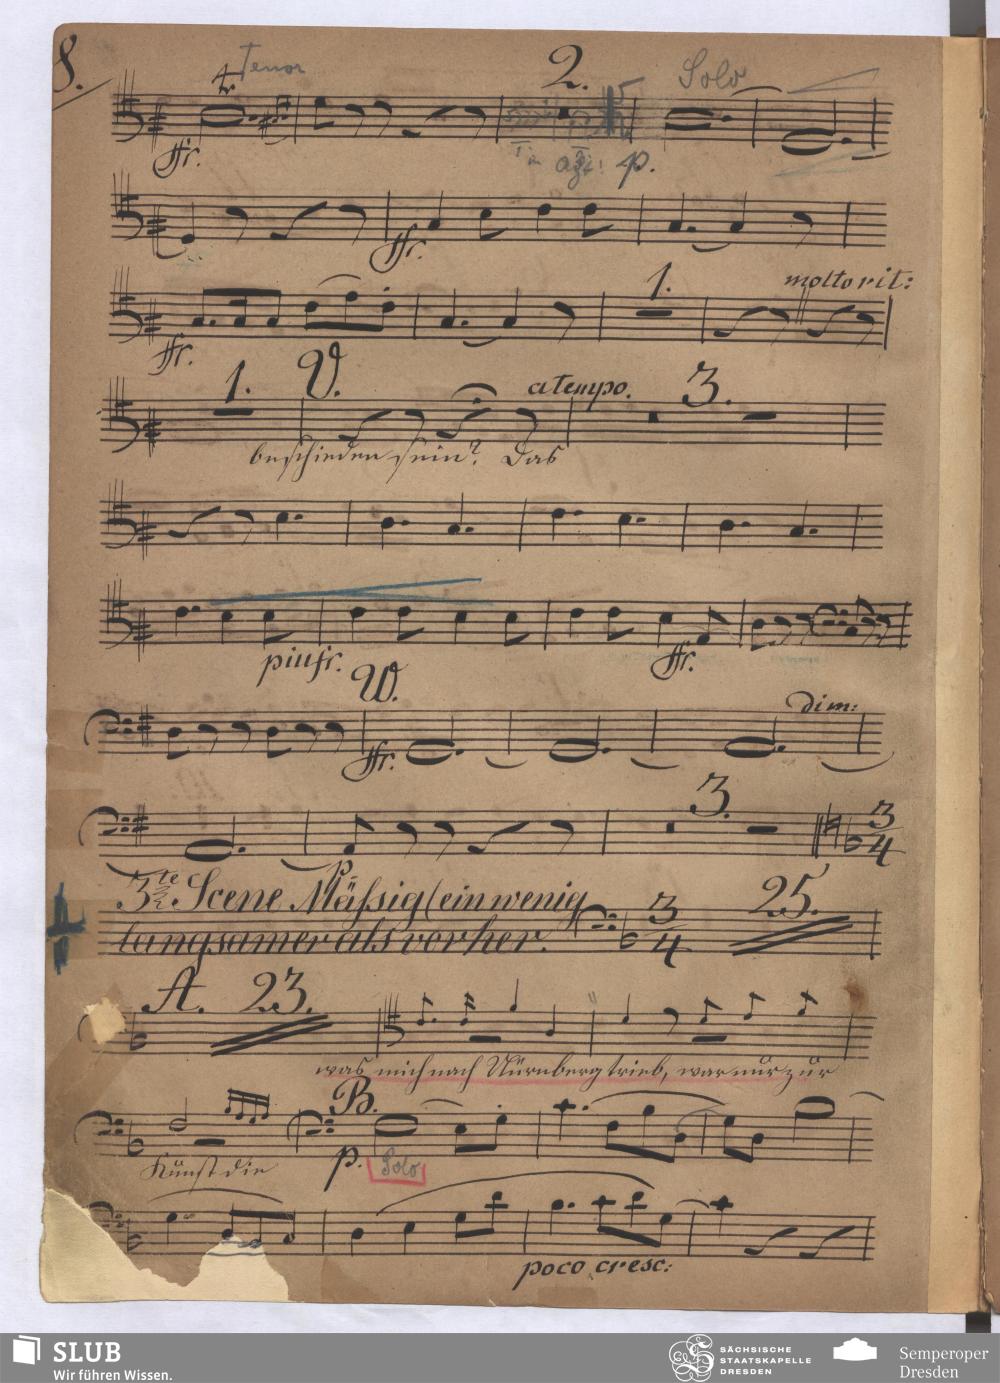 8.
Tenor
2.
Solo
ffr.
p.
ffr.
1.
molto rit:
ffr.
1. V.
a tempo.
3.
beschieden sein? Das
piu fr.
ffr.
W.
ffr.
dim:
3.
3/4
p.
3te Scene Mäßig (ein wenig
langsamer als vorher.
3/4
25.
A. 23.
was mich nach Nürnberg trieb, war nur zur
B.
Kunst die
p.
Solo
poco cresc:
SLUB
Wir führen Wissen.
SÄCHSISCHE
STAATSKAPELLE
DRESDEN
Semperoper
Dresden